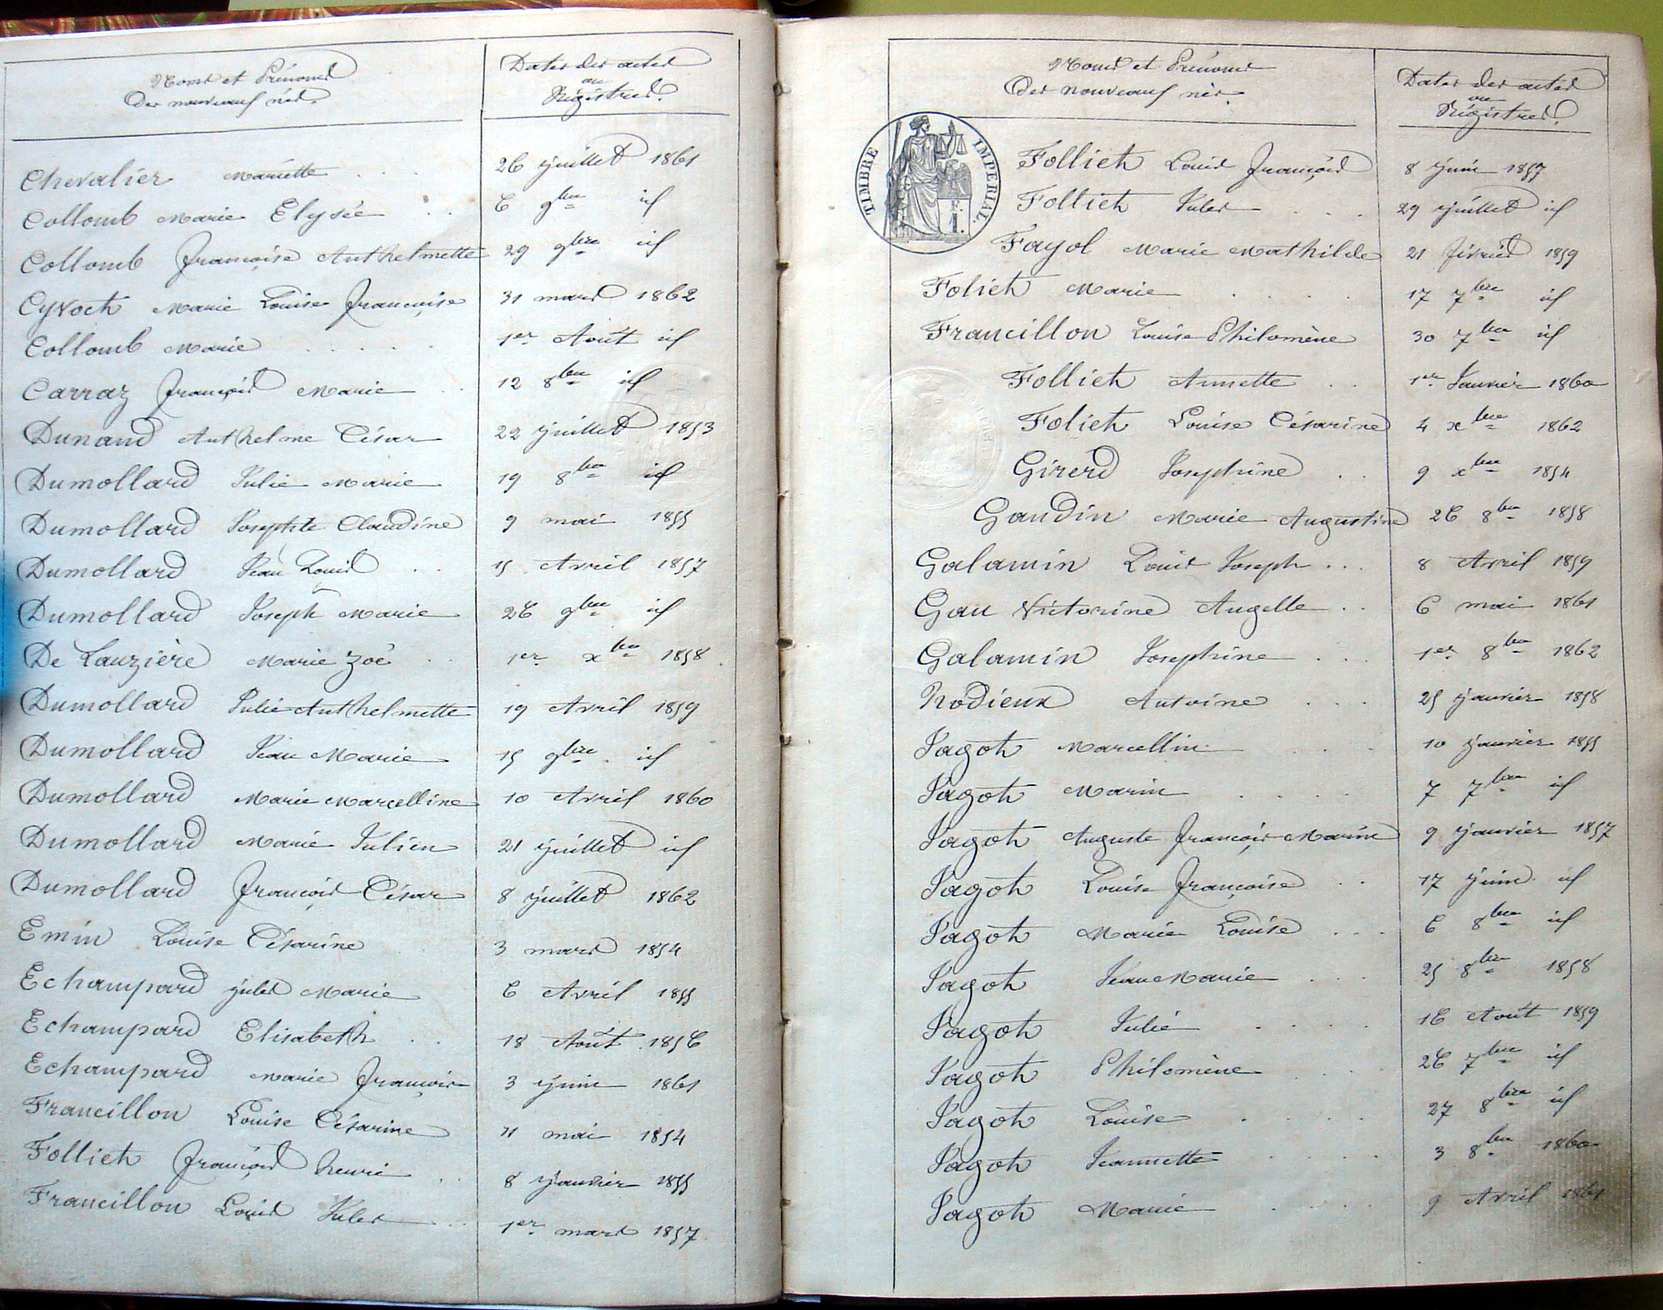 Noms et Prénoms
Des nouveaux nés.
Dates des actes
au
Régistres.
Chevalier Mariette . . . 26 juillet 1861
Collomb Marie Elysée . . 6 9bre id
Collomb Françoise Anthelmette 29 9bre id
Cyvoct Marie Louise Françoise 31 mars 1862
Collomb Marie . . . . . 1er Août id
Carraz François Marie . 12 8bre id
Dunand Anthelme César 22 juillet 1853
Dumollard Julie Marie 19 8bre id
Dumollard Josephte Claudine 9 mai 1855
Dumollard Jean Louis . . 15 Avril 1857
Dumollard Joseph Marie 26 9bre id
De Lauzière Marie Zoé . . 1er xbre 1858.
Dumollard Julie Anthelmette 19 Avril 1859
Dumollard Jean Marie 15 9bre id
Dumollard Marie Marcelline 10 Avril 1860
Dumollard Marie Julien 21 juillet id
Dumollard François César 8 juillet 1862
Emin Louise Césarine 3 mars 1854
Echampard jules Marie 6 Avril 1855
Echampard Elisabeth . . 18 Août 1856
Echampard Marie François 3 juin 1861
Francillon Louise Césarine 11 mai 1854
Folliet François henri . . 8 janvier 1855
Francillon Louis Jules . . 1er mars 1857
Noms et Prénoms
Des nouveaux nés.
Dates des actes
au
Régistres.
TIMBRE IMPERIAL.
Folliet Louis François 8 juin 1857
Folliet Jules . . . 29 juillet id
Fayol Marie Mathilde 21 février 1859
Foliet Marie . . . . 17 7bre id
Francillon Louise Philomène 30 7bre id
Folliet Annette . . 1er Janvier 1860
Foliet Louise Césarine 4 xbre 1862
Girerd Josephine . . 9 xbre 1854
Gaudin Marie Augustine 26 8bre 1858
Galamin Louis Joseph . . . 8 Avril 1859
Gau Victorine Angelle . . 6 mai 1861
Galamin Josephine . . . 1er 8bre 1862
Antoine . . . 25 janvier 1858
Jagot Marcellin . . . 10 janvier 1855
Jagot Marin . . . . 7 7bre id
Jagot Auguste François Marin 9 janvier 1857
Jagot Louise Françoise . . 17 juin id
Jagot Marie Louise . . . 6 8bre id
Jagot Jean Marie . . . 25 8bre 1858
Jagot Julie . . . . 16 Août 1859
Jagot Philomène . . . 26 7bre id
Jagot Louise . . . . 27 8bre id
Jagot Jeannette . . . . 3 8bre 1860
Jagot Marie . . . . 9 Avril 1861